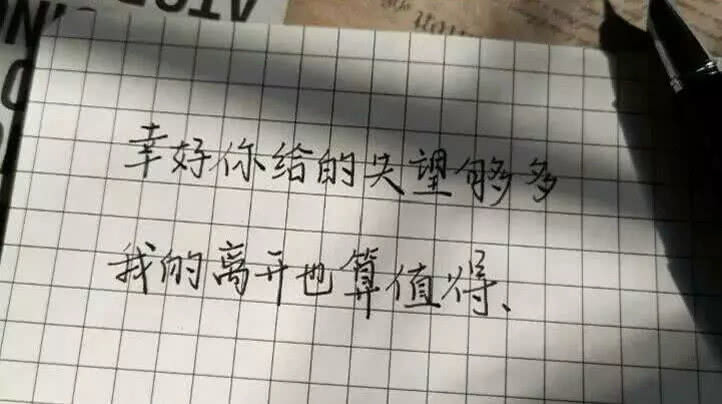 幸好你给的失望够多
我的离开也算值得、